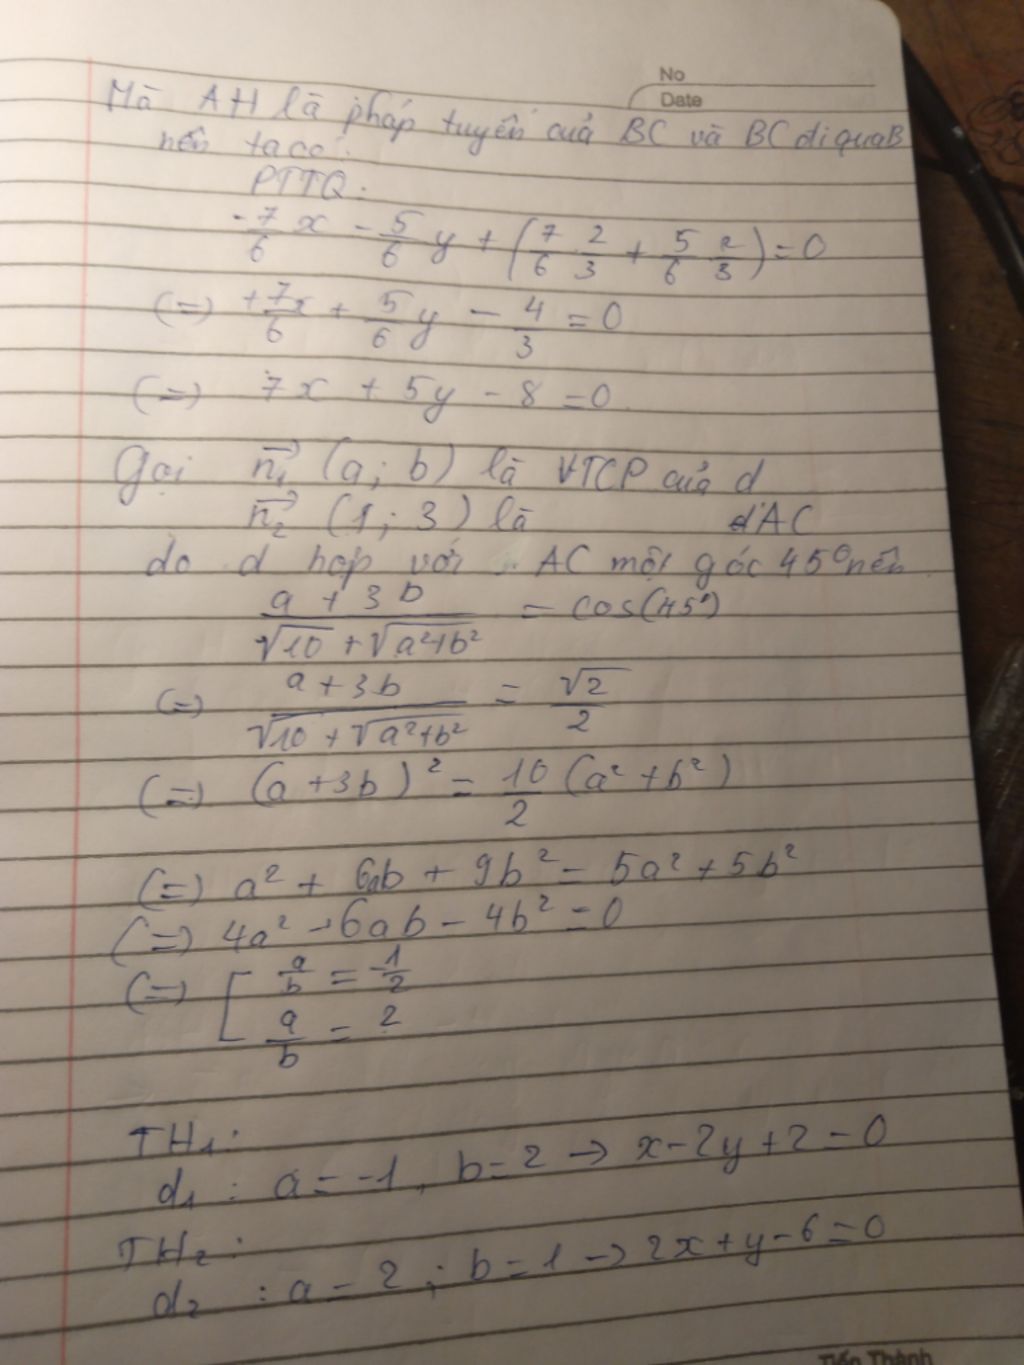 No
Date
Mà AH là pháp tuyến của BC và BC đi qua B
nên ta có:
PTTQ:
-7/6 x - 5/6 y + (7/6 2/3 + 5/6 2/3) = 0
(=) +7x/6 + 5/6 y - 4/3 = 0
(=) 7x + 5y - 8 = 0
Gọi n₁→ (a; b) là VTCP của d
n₂→ (1; 3) là đAC
do d hợp với AC một góc 45° nên
a + 3b / √10 + √a²+b² = cos(45°)
(=) a + 3b / √10 + √a²+b² = √2/2
(=) (a + 3b)² = 10/2 (a² + b²)
(=) a² + 6ab + 9b² = 5a² + 5b²
(=) 4a² - 6ab - 4b² = 0
(=) [ a/b = -1/2
a/b = 2
TH₁:
d₁ : a = -1, b = 2 → x - 2y + 2 = 0
TH₂:
d₂ : a = 2; b = 1 → 2x + y - 6 = 0
Tiến Thành